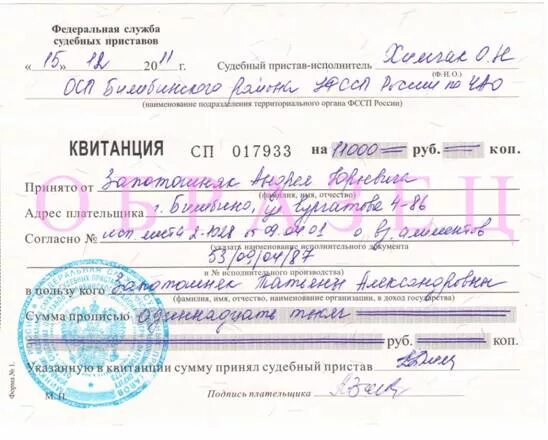 Федеральная служба
судебных приставов
« 15 » 12 2011 г. Судебный пристав-исполнитель Химчак О.Н
(Ф.И.О.)
ОСП Билибинского района УФССП России по ЧАО
(наименование подразделения территориального органа ФССП России)
КВИТАНЦИЯ СП 017933 на 11000 руб. коп.
Принято от Запотошняк Андрея Юрьевича
(фамилия, имя, отчество)
Адрес плательщика г. Билибино, ул Курчатова 4-86
Согласно № исп листа 2-1028 от 09.04.03 о вз. алиментов
(указать наименование исполнительного документа
53/09/04/87
и № исполнительного производства)
в пользу кого Запотошняк Татьяны Александровны
(фамилия, имя, отчество, наименование организации, в доход государства)
Сумма прописью одиннадцать тысяч
руб. коп.
Указанную в квитанции сумму принял судебный пристав
М.П. Подпись плательщика
Форма № 1.
ОБРАЗЕЦ